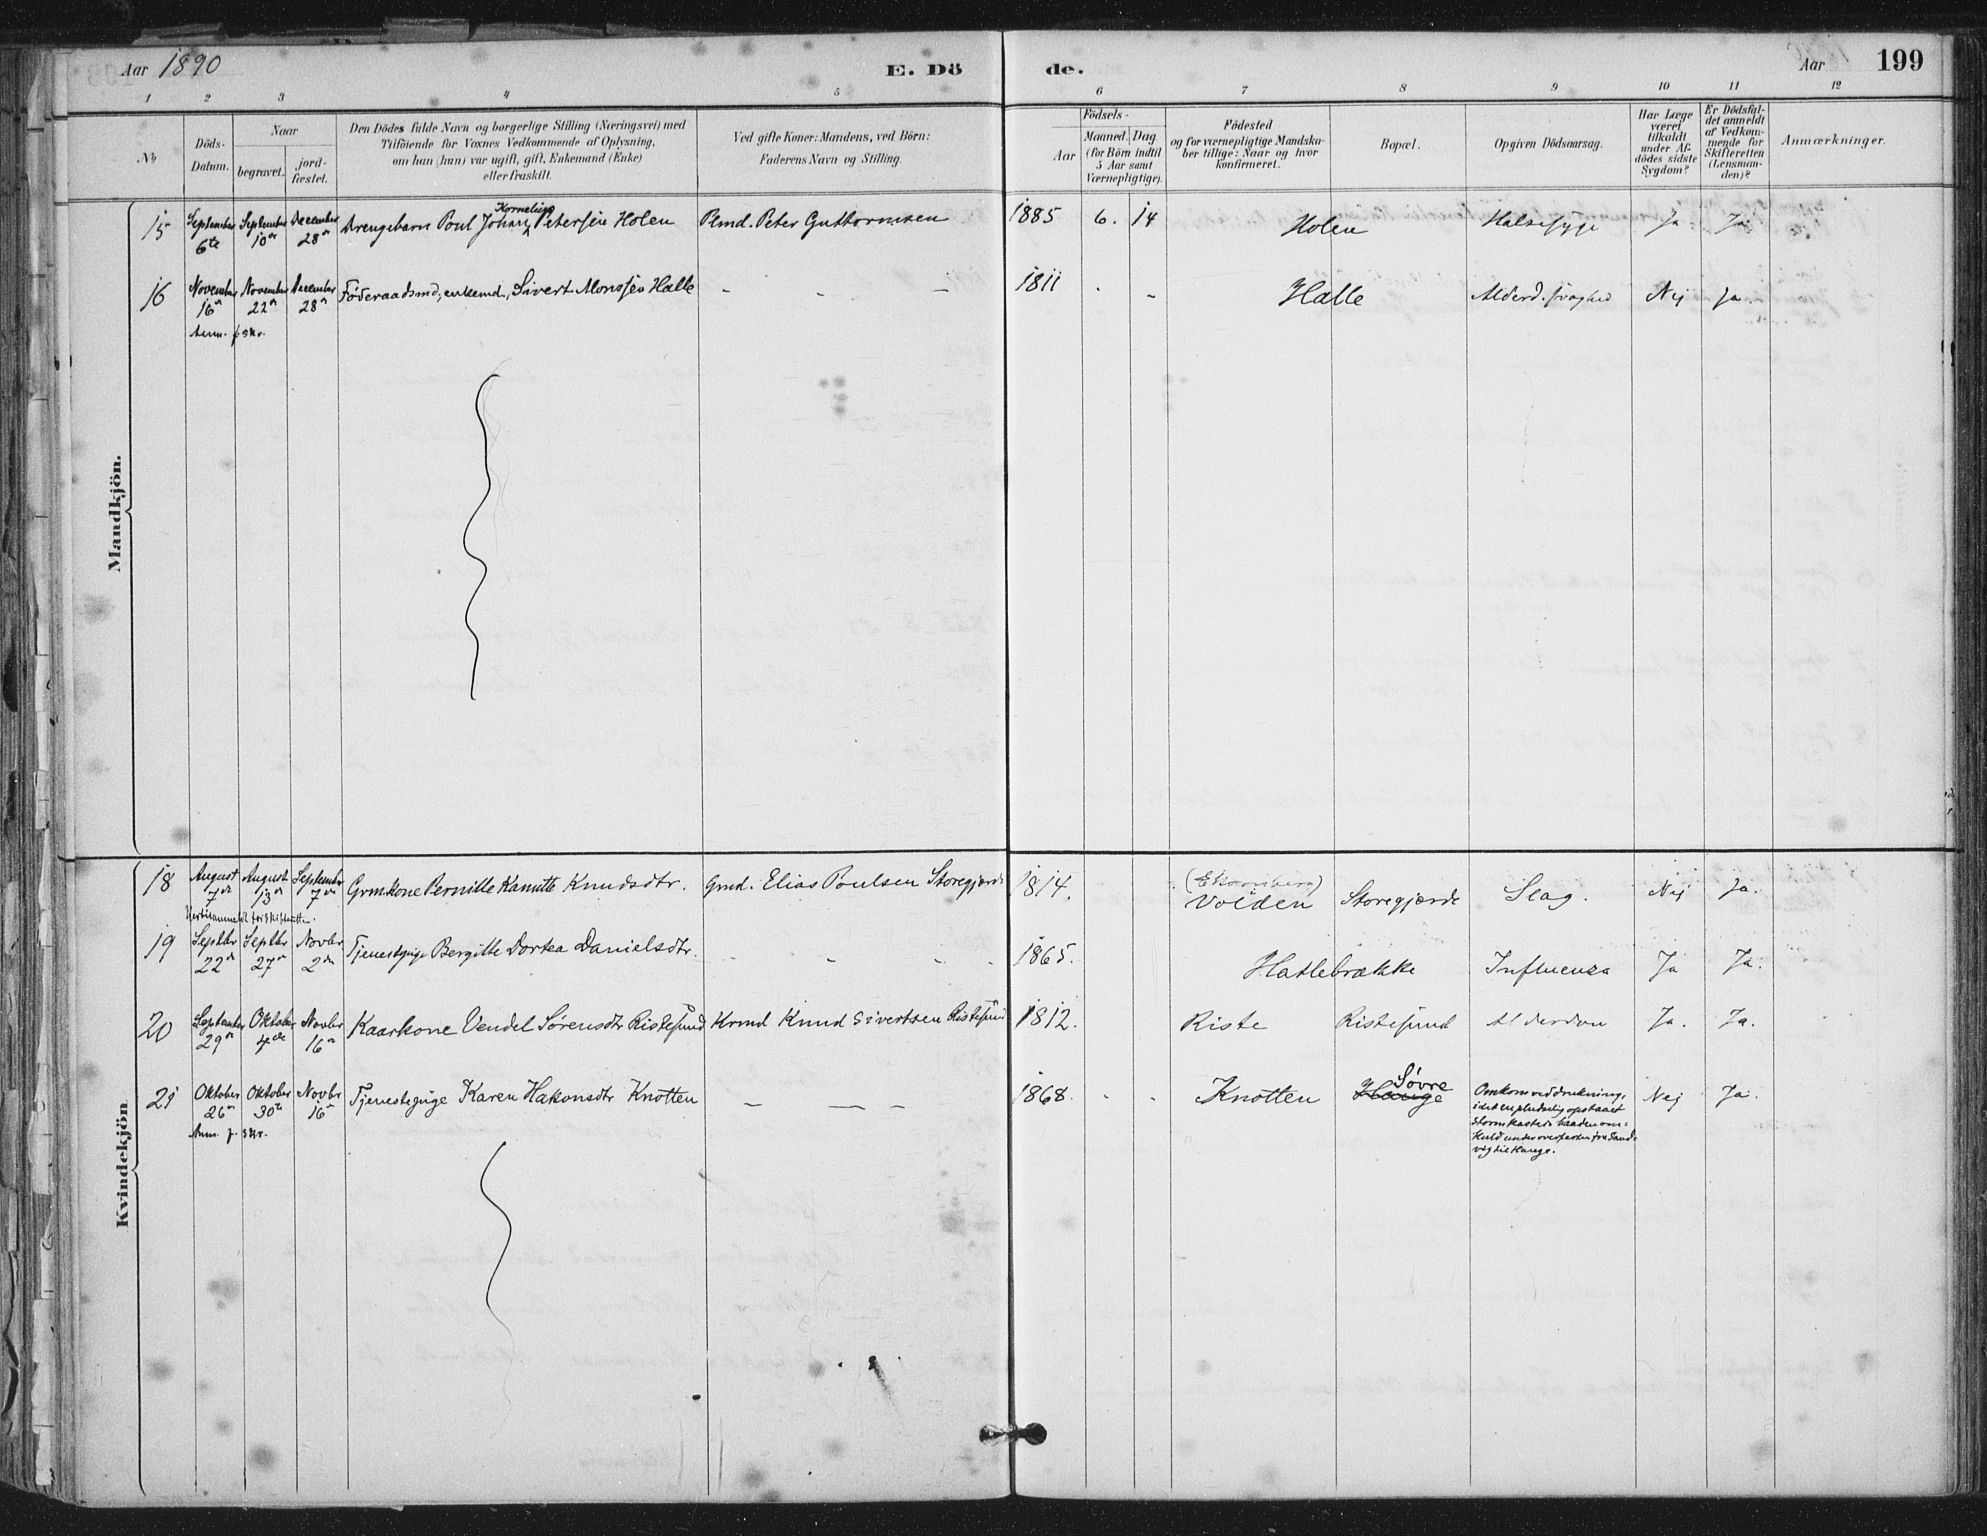 Aar 1890 E. Dö de. Aar 199
1 2 3 4 5 6 7 8 9 10 11 12
No
Döds-Datum.
Naar
begravet.
jord-fæstet.
Den Dödes fulde Navn og borgerlige Stilling (Næringsvei) med
Tilföiende for Voxnes Vedkommende af Oplysning,
om han (hun) var ugift, gift, Enkemand (Enke)
eller fraskilt.
Ved gifte Koner: Mandens, ved Börn:
Faderens Navn og Stilling.
Födsels-
Aar
Maaned.
Dag.
(for Börn indtil
5 Aar samt
Værnepligtige).
Födested
og for værnepligtige Mandska-
ber tillige: Naar og hvor
konfirmeret.
Bopæl.
Opgiven Dödsaarsag.
Har Læge
været
tilkaldt
under Af-
dödes sidste
Sygdom?
Er Dödsfal-
det anmeldt
af Vedkom-
mende for
Skifteretten
(Lensman-
den)?
Anmærkninger.
Mandkjön.
Kornelius
15 September 6te September 10de December 28de Drengebarn Poul Johan Petersen Holen Plmd. Peter Guttormsen 1885 6. 14 Holen Halssyge Ja. Ja.
16 November 16de November 22de December 28de Föderaadsmd, enkemd, Sivert Monssen Halle - - - 1811 - - Halle Alderd. svaghed Nej Ja.
Anm. f. Skr.
Kvindekjön
18 August 7de August 13de September 7de Grmkone Pernille Kanutte Knudsdtr. Grmd. Elias Poulsen Storegjærde 1814. Volden Storegjærde Slag. Nej Ja.
19 Septbr 22de Septbr 27de Novbr 2den Tjenestepige Bergitte Dortea Danielsdtr. - - - 1865. Hatlebrække Influenza Ja Ja.
20 September 29de Oktober 4de Novbr 16de Kaarkone Vendel Sørensdtr Ristesund Krmd Knud Sivertsen Ristesund 1812. Riste Ristesund Alderdom Ja. Ja.
Søvre
21 Oktober 26de Oktober 30te Novbr 16de Tjenestepige Karen Hakonsdtr Knotten - - - 1868. - - Knotten Hauge Omkom ved drukning, Nej Ja.
idet en pludselig opstaaet
storm kastede baaden om-
kuld under overfarten fra Sand-
vig til Hauge.
Anm. f. Skr.